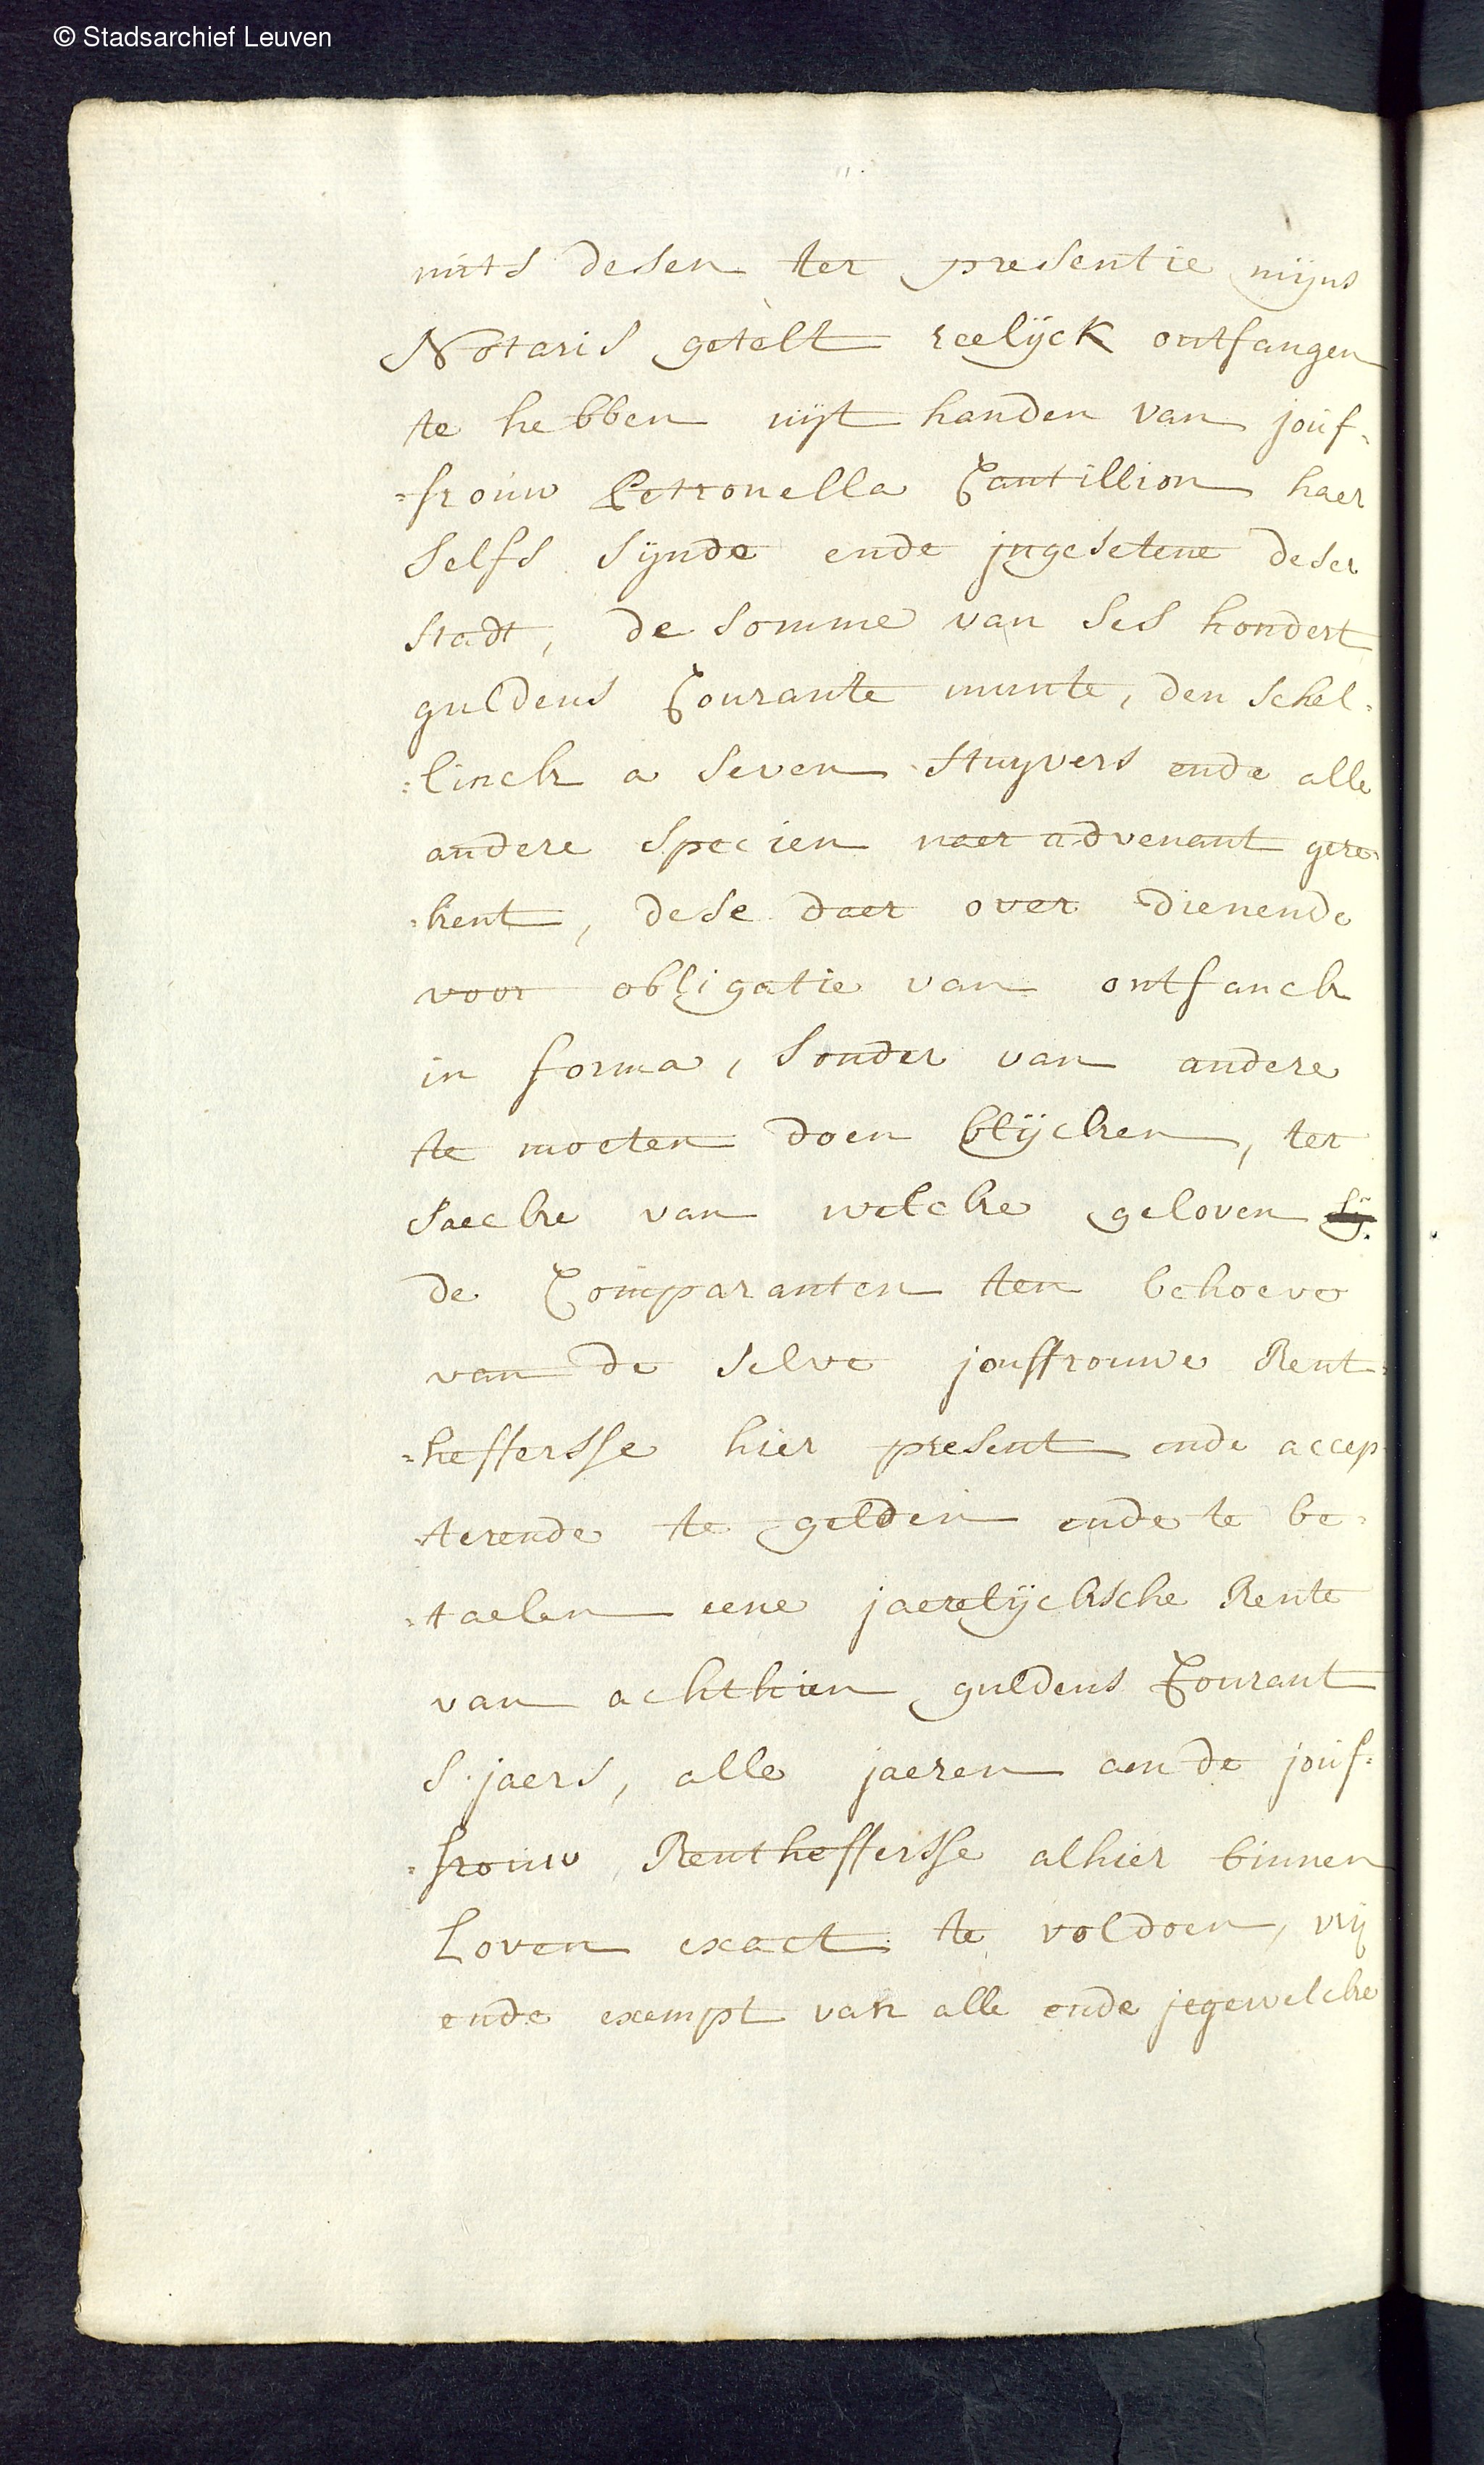 © Stadsarchief Leuven
mits desen ter presentie mijns
Notaris getèlt reelijck ontfangen
te hebben uijt handen van jouf=
=frouw Petronella Cantillion haer
selfs sijnde ende jngesetene deser
stadt, de somme van ses hondert
guldens Courante munte, den schel=
=linck a seven stuyvers ende alle
andere specien naer advenant gere=
=kent, dese daer over dienende
voor obligatie van ontfanck
in forma, sonder van andere
te moeten doen blijcken, ter
saecke van welcke geloven sij
de Comparanten ten behoeve
van de selve jouffrouwe Rent=
=heffersse hier present ende accep=
=terende te gelden ende te be=
=taelen eene jaerelijcksche Rente
van achthien guldens Courant
s jaers, alle jaeren aen de jouf=
=frouw Rentheffersse alhier binnen
Loven exact te voldoen, vrij
ende exempt van alle ende jegewelcke